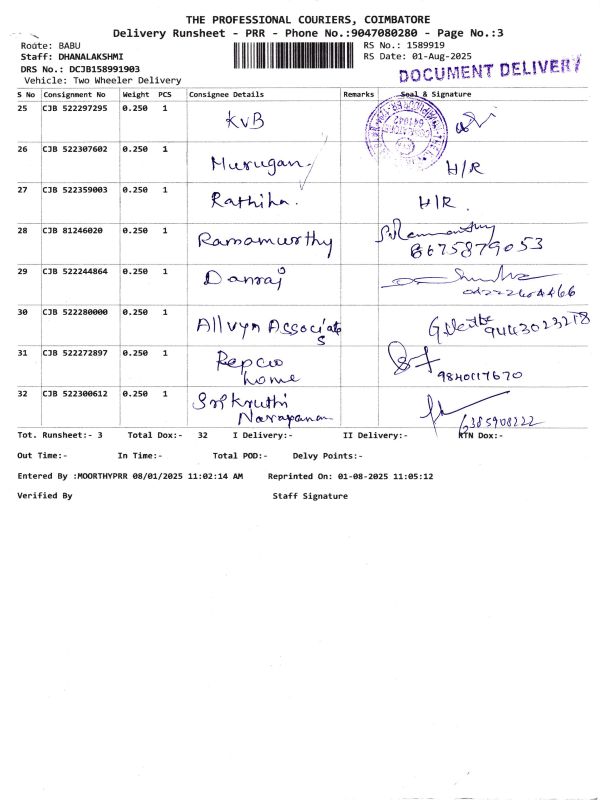 THE PROFESSIONAL COURIERS, COIMBATORE
Delivery Runsheet - PRR - Phone No.:9047080280 - Page No.:3
Route: BABU
RS No.: 1589919
Staff: DHANALAKSHMI
RS Date: 01-Aug-2025
DRS No.: DCJB158991903
DOCUMENT DELIVERY
Vehicle: Two Wheeler Delivery
S No Consignment No Weight PCS Consignee Details Remarks Seal & Signature
25 CJB 522297295 0.250 1 KVB
26 CJB 522307602 0.250 1 Murugan. H/R
27 CJB 522359003 0.250 1 Rathiha. H/R.
28 CJB 81246020 0.250 1 Ramamurthy
8675879053
29 CJB 522244864 0.250 1 Danraj
30 CJB 522280000 0.250 1 Allvyn Associates 9443023218
31 CJB 522272897 0.250 1 Repco
home 9840117670
32 CJB 522300612 0.250 1 Sri Kruthi
Narayanan 6385908222
Tot. Runsheet:- 3 Total Dox:- 32 I Delivery:- II Delivery:- RTN Dox:-
Out Time:- In Time:- Total POD:- Delvy Points:-
Entered By :MOORTHYPRR 08/01/2025 11:02:14 AM Reprinted On: 01-08-2025 11:05:12
Verified By Staff Signature